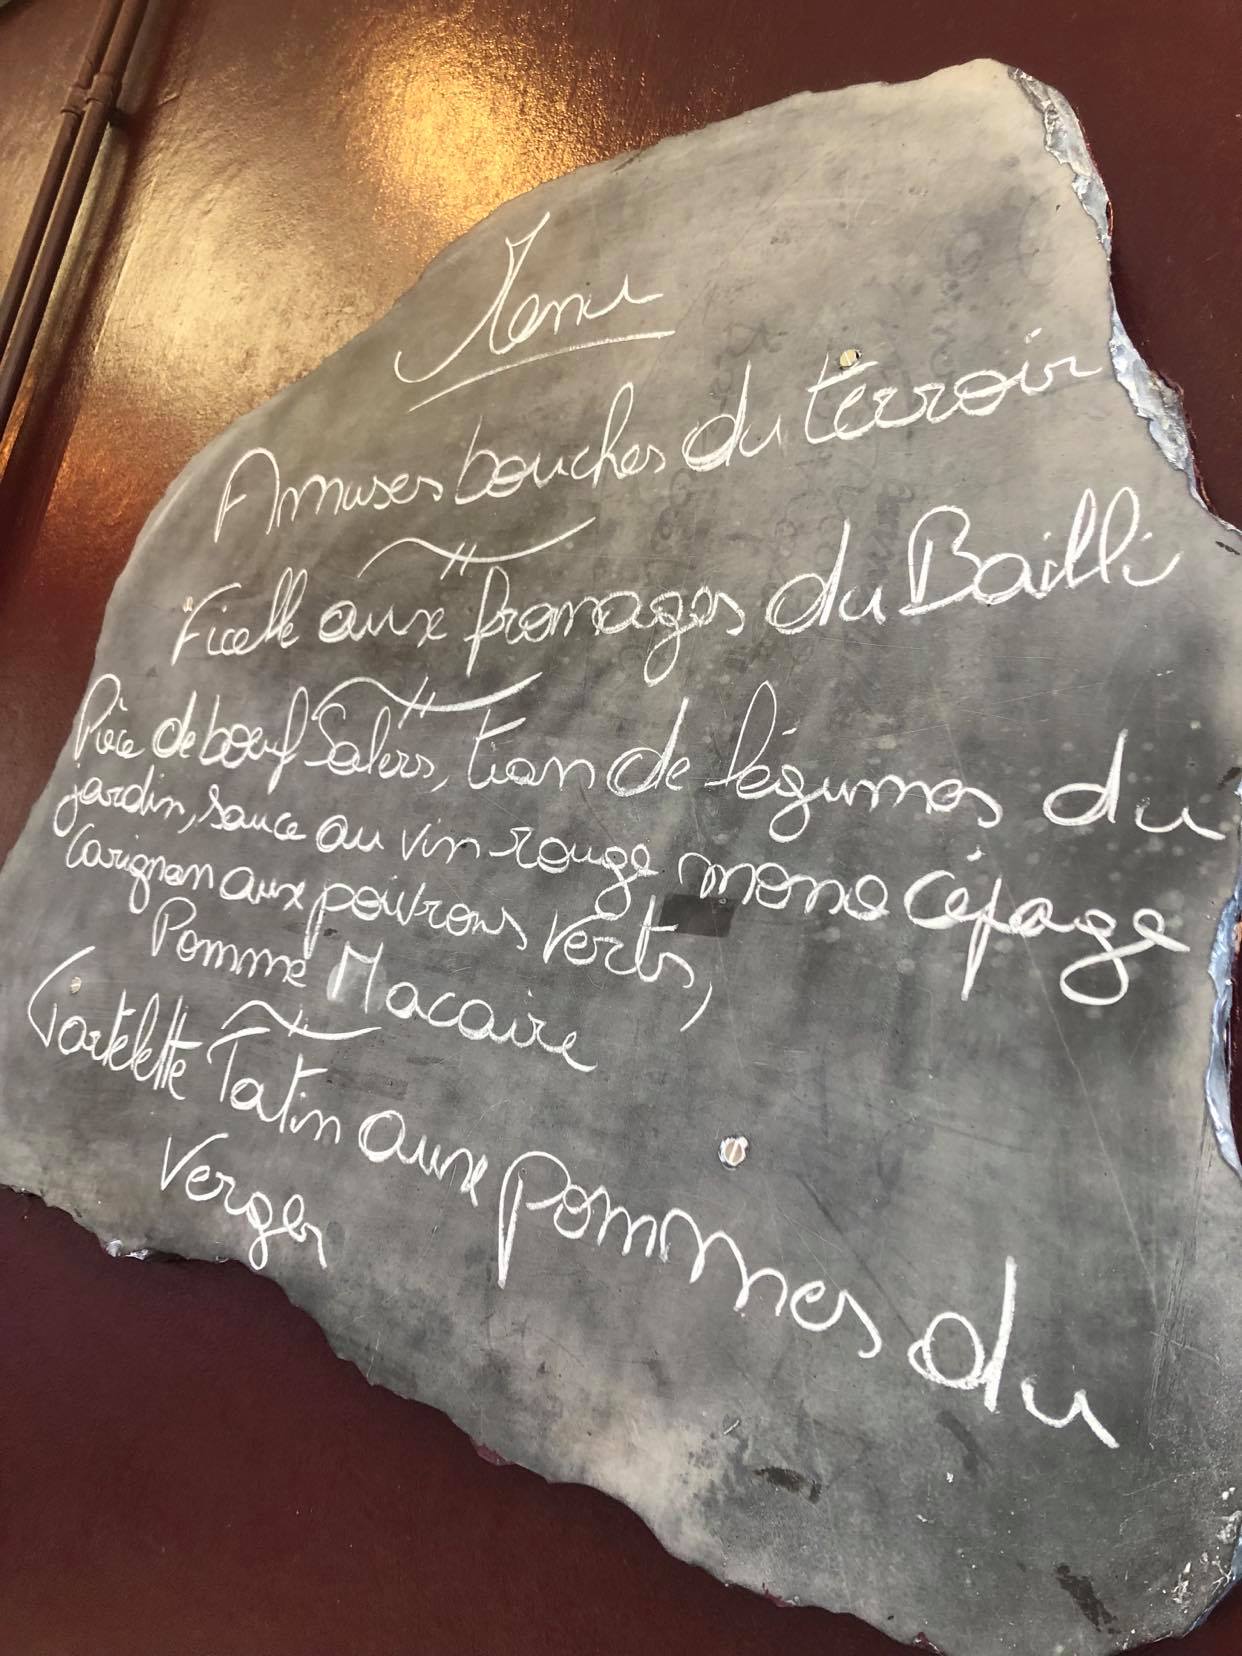 Menu
Amuses bouches du terroir
Ficelle aux fromages du Bailli
Pièce de boeuf Salers, tian de légumes du
jardin, sauce au vin rouge mono cépage
Carignan aux poivrons verts,
Pomme Macaire
Tartelette Tatin aux pommes du
Verger